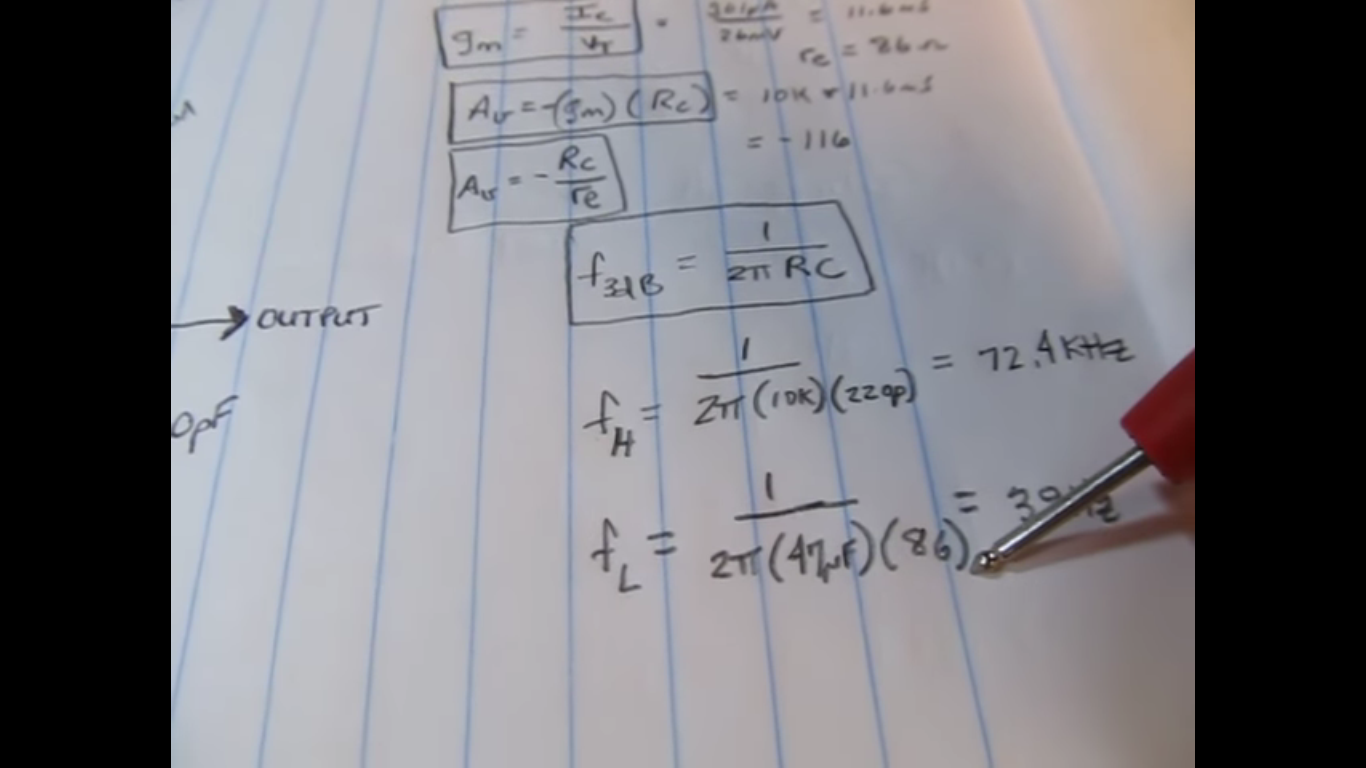 gm = Ic / VT = 301µA / 26mV = 11.6mS
re = 86 Ω
Av = -(gm) (Rc) = 10K * 11.6mS
= - 116
Av = - Rc / re
f3dB = 1 / 2π RC
OUTPUT
fH = 1 / 2π (10K) (220p) = 72.4 KHz
0pF
fL = 1 / 2π (47µF) (86) =